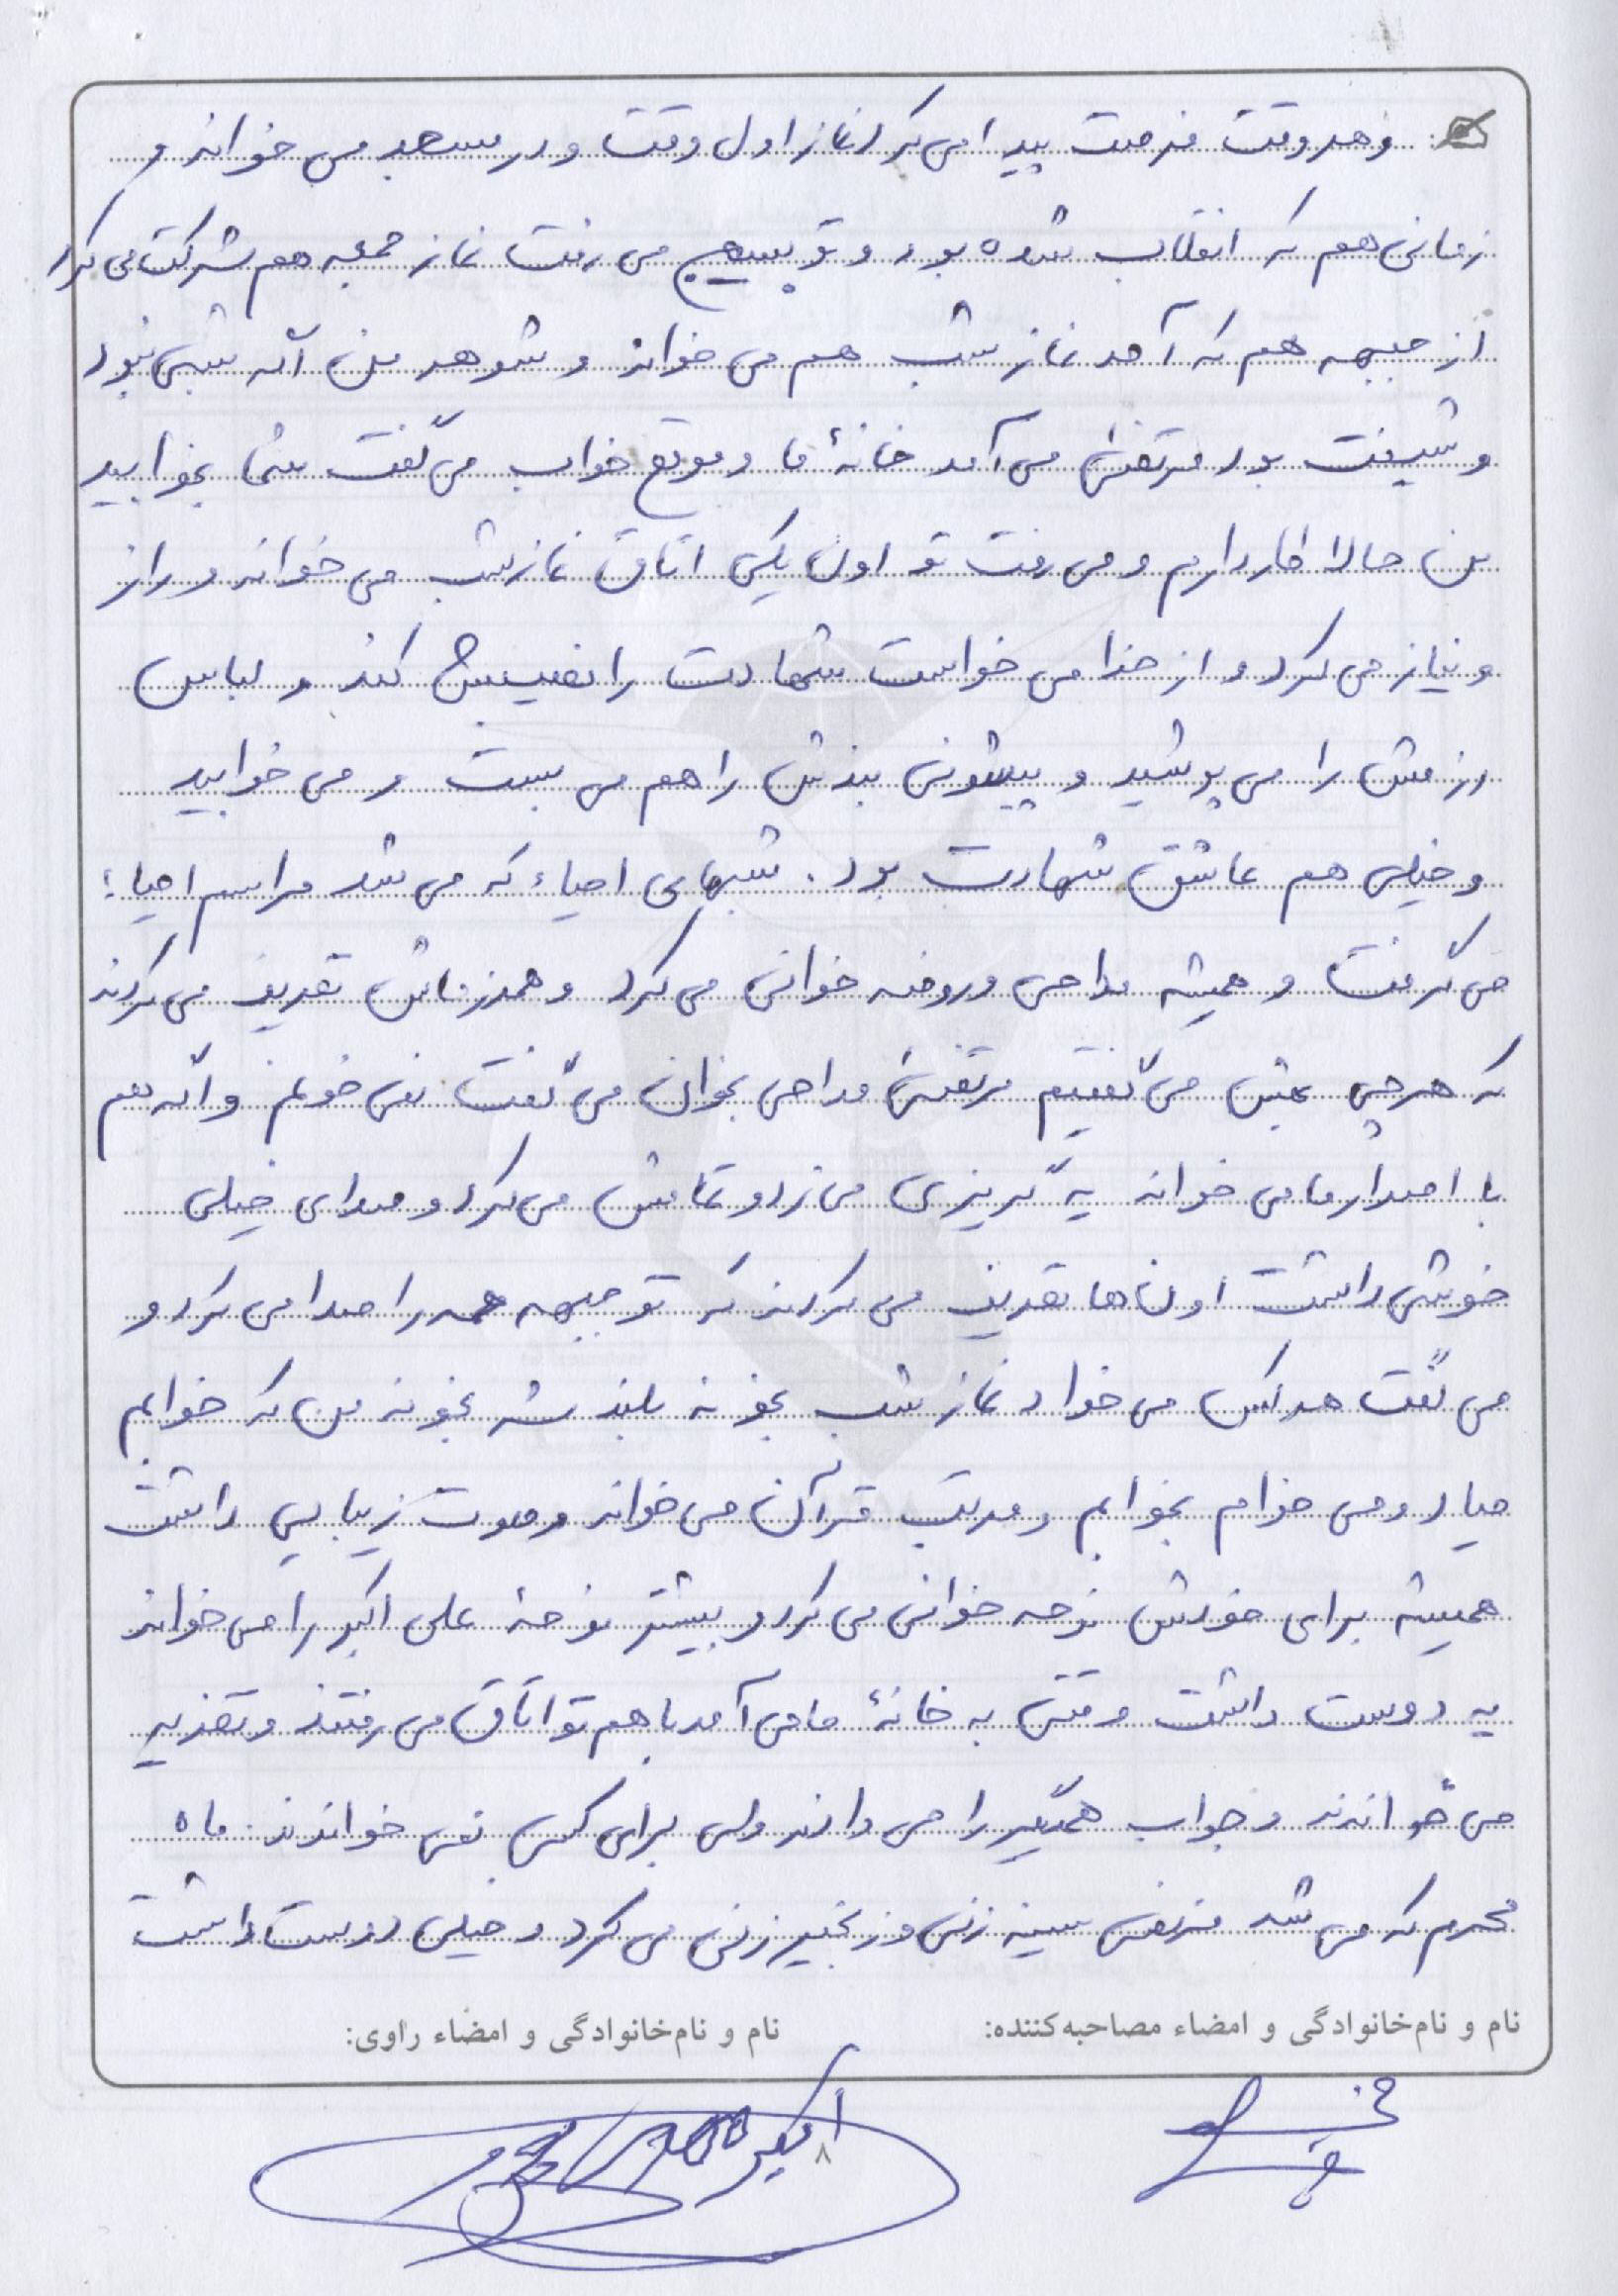 و هر وقت فرصت پیدا می کرد نماز اول وقت و در مسجد می خواند و
زمانی هم که انقلاب شده بود و تو بسیج می رفت نماز جمعه هم شرکت می کرد
از جبهه هم که آمد نماز شب هم می خواند و شوهر من اگه شبی نبود
و شیفت بود مرتضی می آمد خانهٔ ما و موقع خواب می گفت شما بخوابید
من حالا کار دارم و می رفت تو اون یکی اتاق نماز شب می خواند و راز
و نیاز می کرد و از خدا می خواست شهادت را نصیبش کند و لباس
رزمش را می پوشید و پیشونی بندش را هم می بست و می خوابید
و خیلی هم عاشق شهادت بود. شبهای احیاء که می شد مراسم احیاء
می گرفت و همیشه مداحی و روضه خوانی می کرد و همرزماش تعریف می کردند
که هر چی بهش می گفتیم مرتضی مداحی بخوان می گفت نمی خونم و اگه هم
با اصرار ما می خواند یه گریزی می زد و تمامش می کرد و صدای خیلی
خوشی داشت اون ها تعریف می کردند که تو جبهه همه را صدا می کرد و
می گفت هر کس می خواد نماز شب بخونه بلند شه بخونه من که خوابم
میاد و می خوام بخوابم و مرتب قرآن می خواند و صوت زیبایی داشت
همیشه برای خودش نوحه خوانی می کرد و بیشتر نوحهٔ علی اکبر را می خواند
یه دوست داشت وقتی به خانهٔ ما می آمد با هم تو اتاق می رفتند و تعزیه
می خواندند و جواب همدیگر را می دادند ولی برای کسی نمی خواندند. ماه
محرم که می شد مرتضی سینه زنی و زنجیر زنی می کرد و خیلی دوست داشت
نام و نام‌خانوادگی و امضاء مصاحبه‌کننده: نام و نام‌خانوادگی و امضاء راوی:
۸